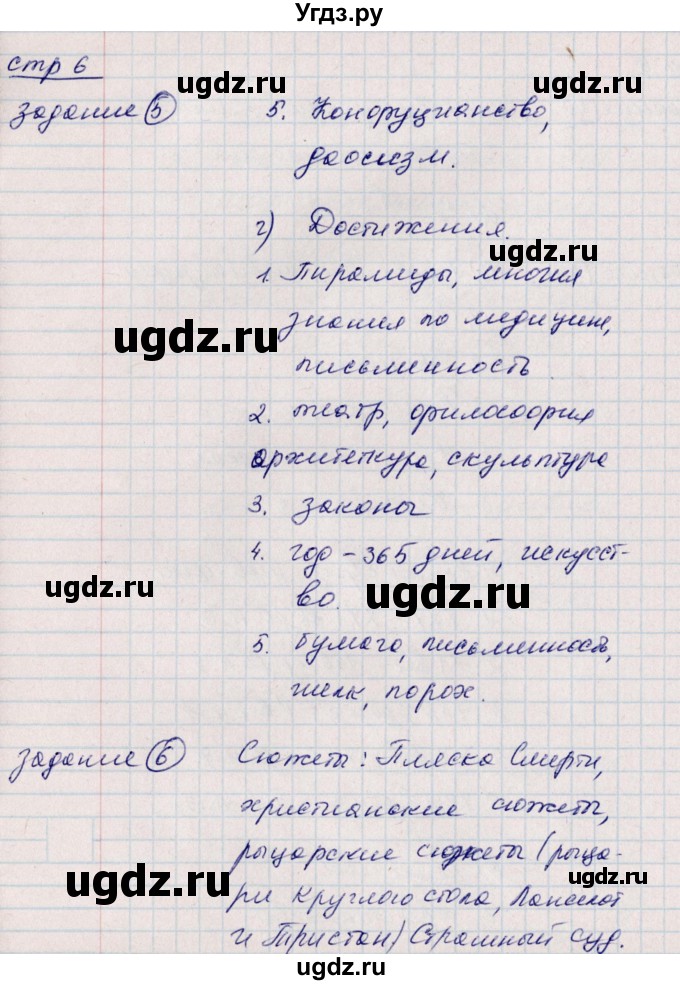 Угдз.ру
стр 6
ugdz.ru
ugdz.ru
задание 5
5. Конфуцианство,
даосизм.
г) Достижения.
ugdz.ru
1. Пирамиды, многия
знания по медицине,
ugdz.ru
письменность
2. театр, философия
архитектура, скульптура
3. Законы
4. год - 365 дней, искусст-
ugdz.ru
ugdz.ru
во.
5. бумага, письменность,
ugdz.ru
шелк, порох.
задание 6
Сюжеты: Пляска Смерти,
христианские сюжеты,
рыцарские сюжеты (рыца-
ugdz.ru
ugdz.ru
ри Круглого стола, Ланселот
и Тристан) Страшный суд.
ugdz.ru